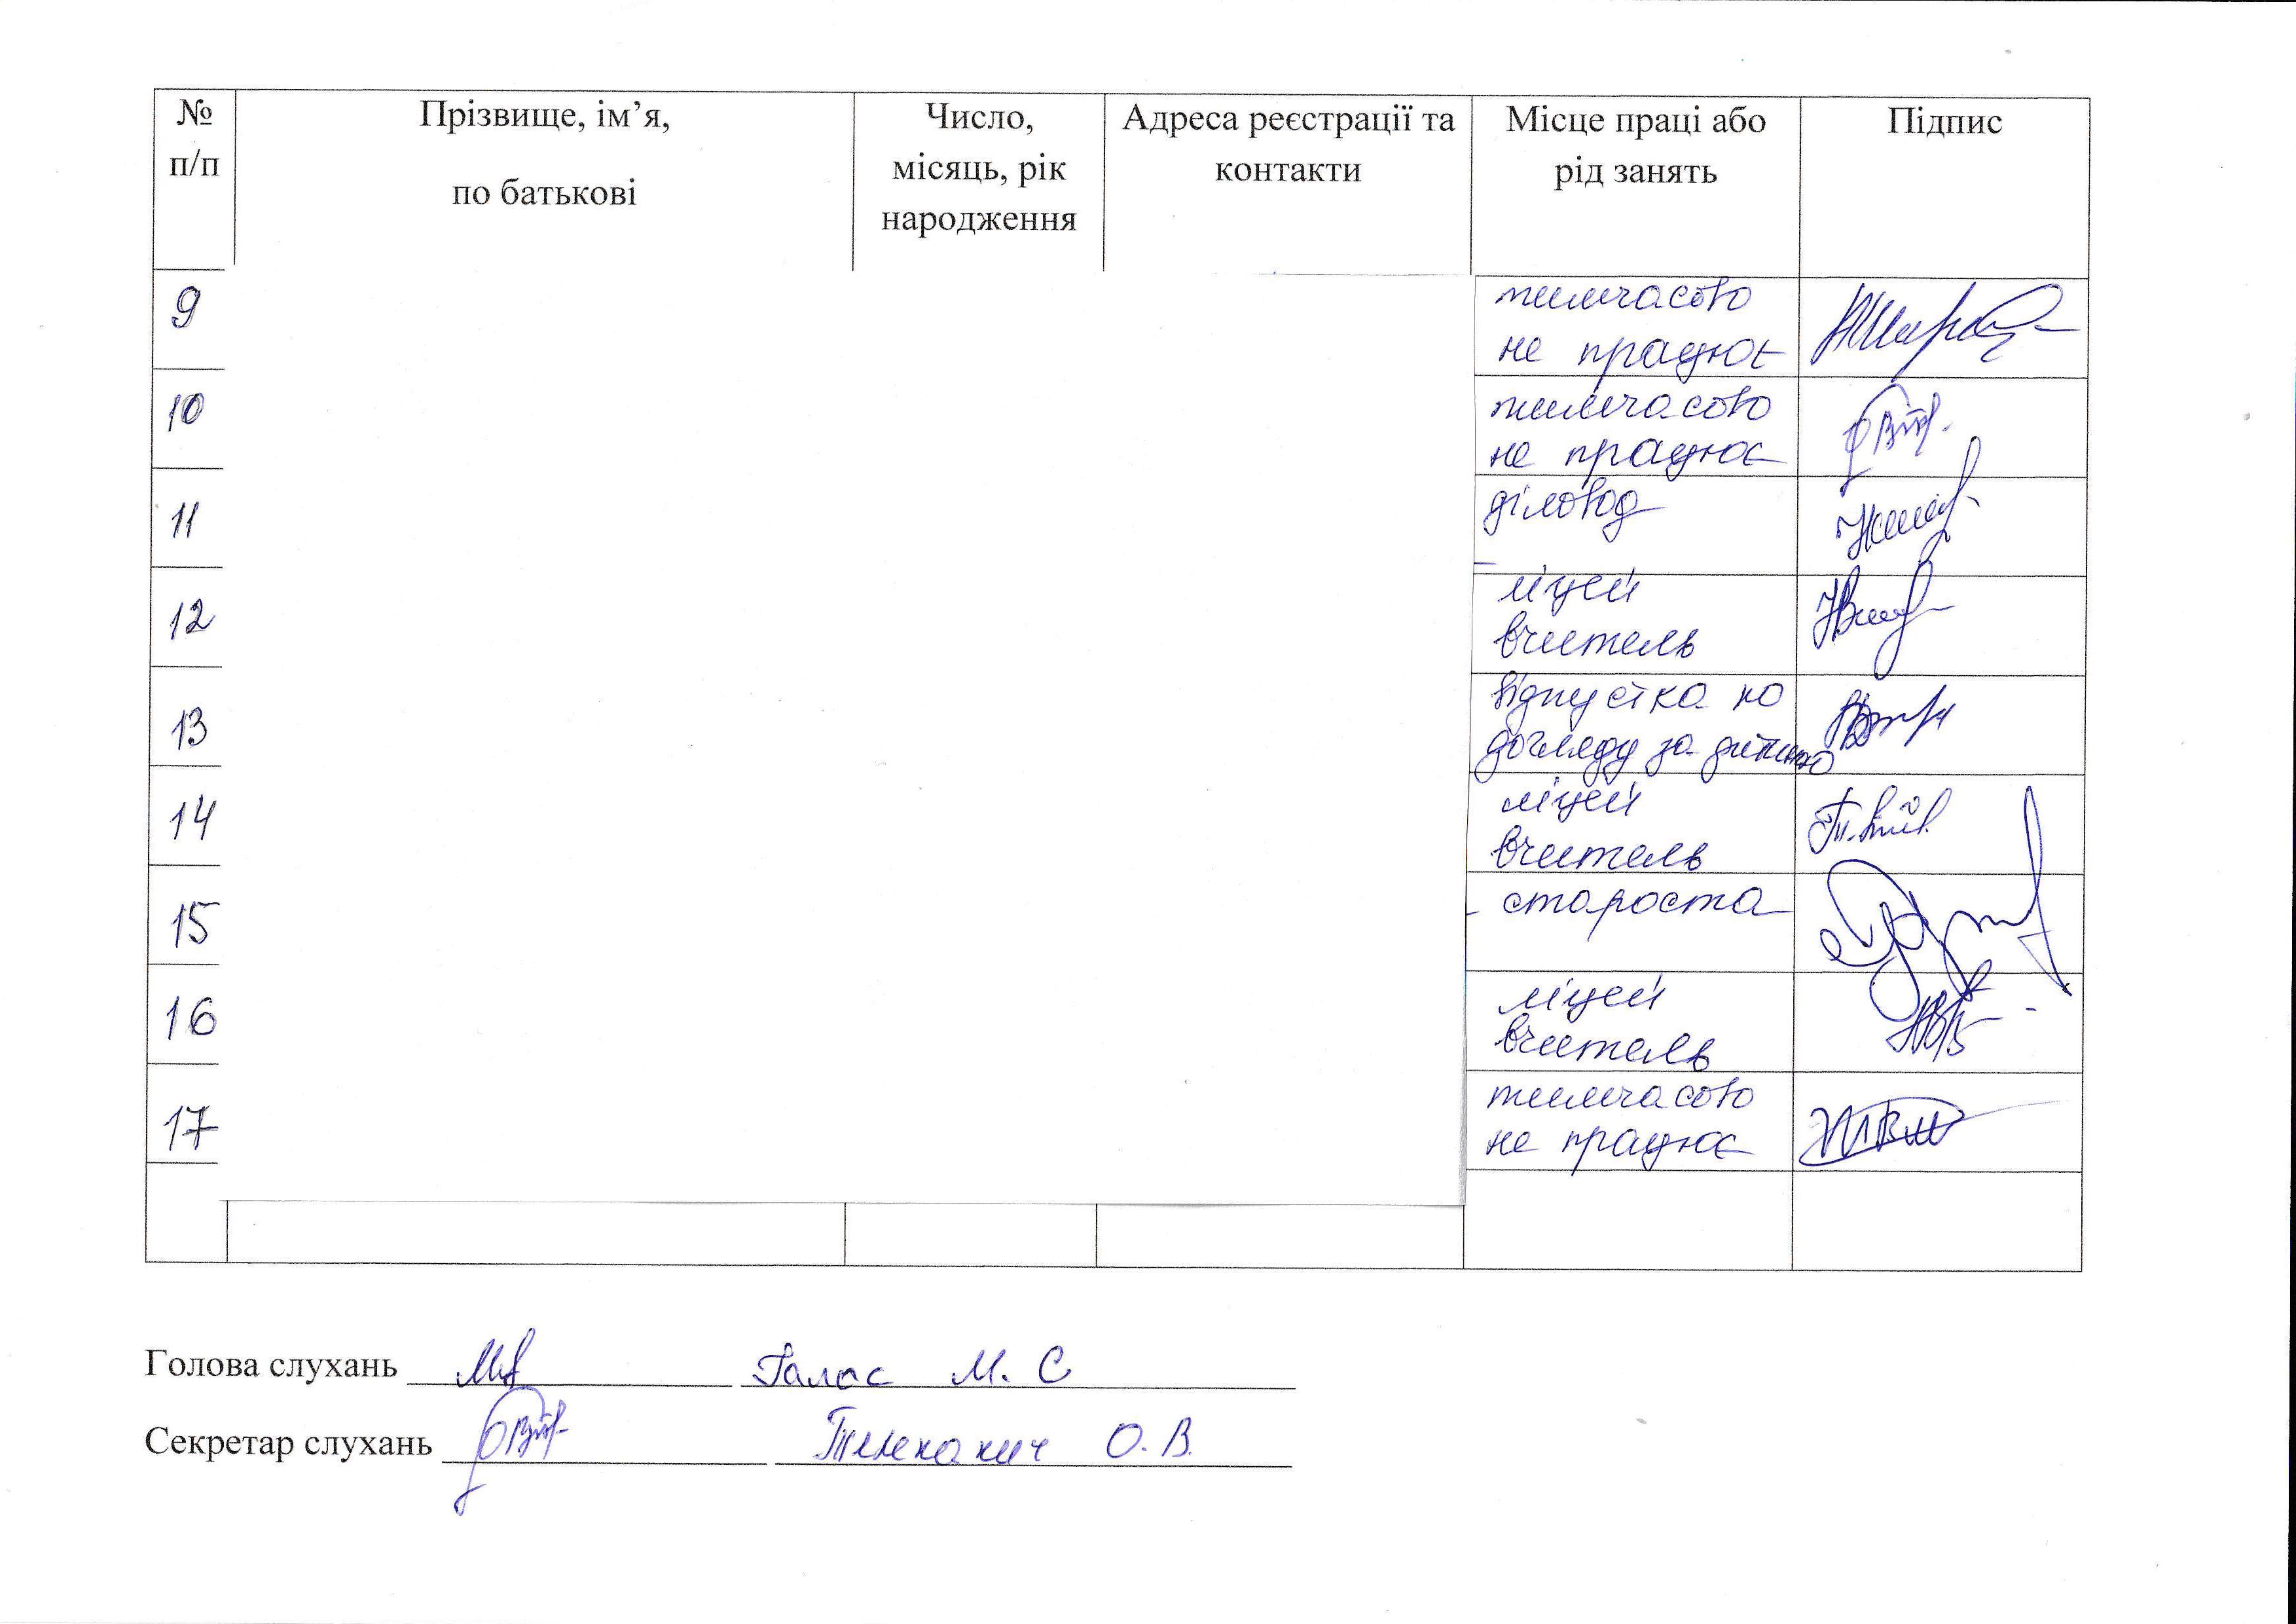 № п/п
Прізвище, ім’я,
по батькові
Число,
місяць, рік
народження
Адреса реєстрації та
контакти
Місце праці або
рід занять
Підпис
9
тимчасово
не працює
10
тимчасово
не працює
11
діловод
12
ліцей
вчитель
13
відпустка по
догляду за дитиною
14
ліцей
вчитель
15
староста
16
ліцей
вчитель
17
тимчасово
не працює
Голова слухань Галас М. С
Секретар слухань О. В.